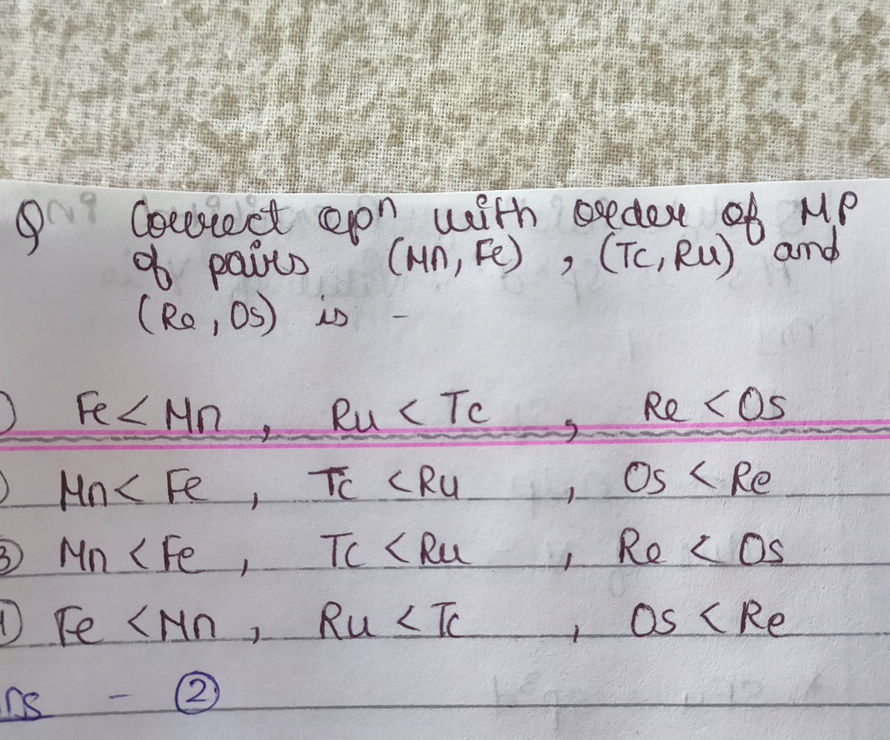 Q Correct opn with order of MP
of pairs (Mn, Fe) , (Tc, Ru) and
(Re, Os) is -
) Fe < Mn , Ru < Tc , Re < Os
) Mn < Fe , Tc < Ru , Os < Re
③ Mn < Fe , Tc < Ru , Re < Os
) Fe < Mn , Ru < Tc , Os < Re
ns - ②